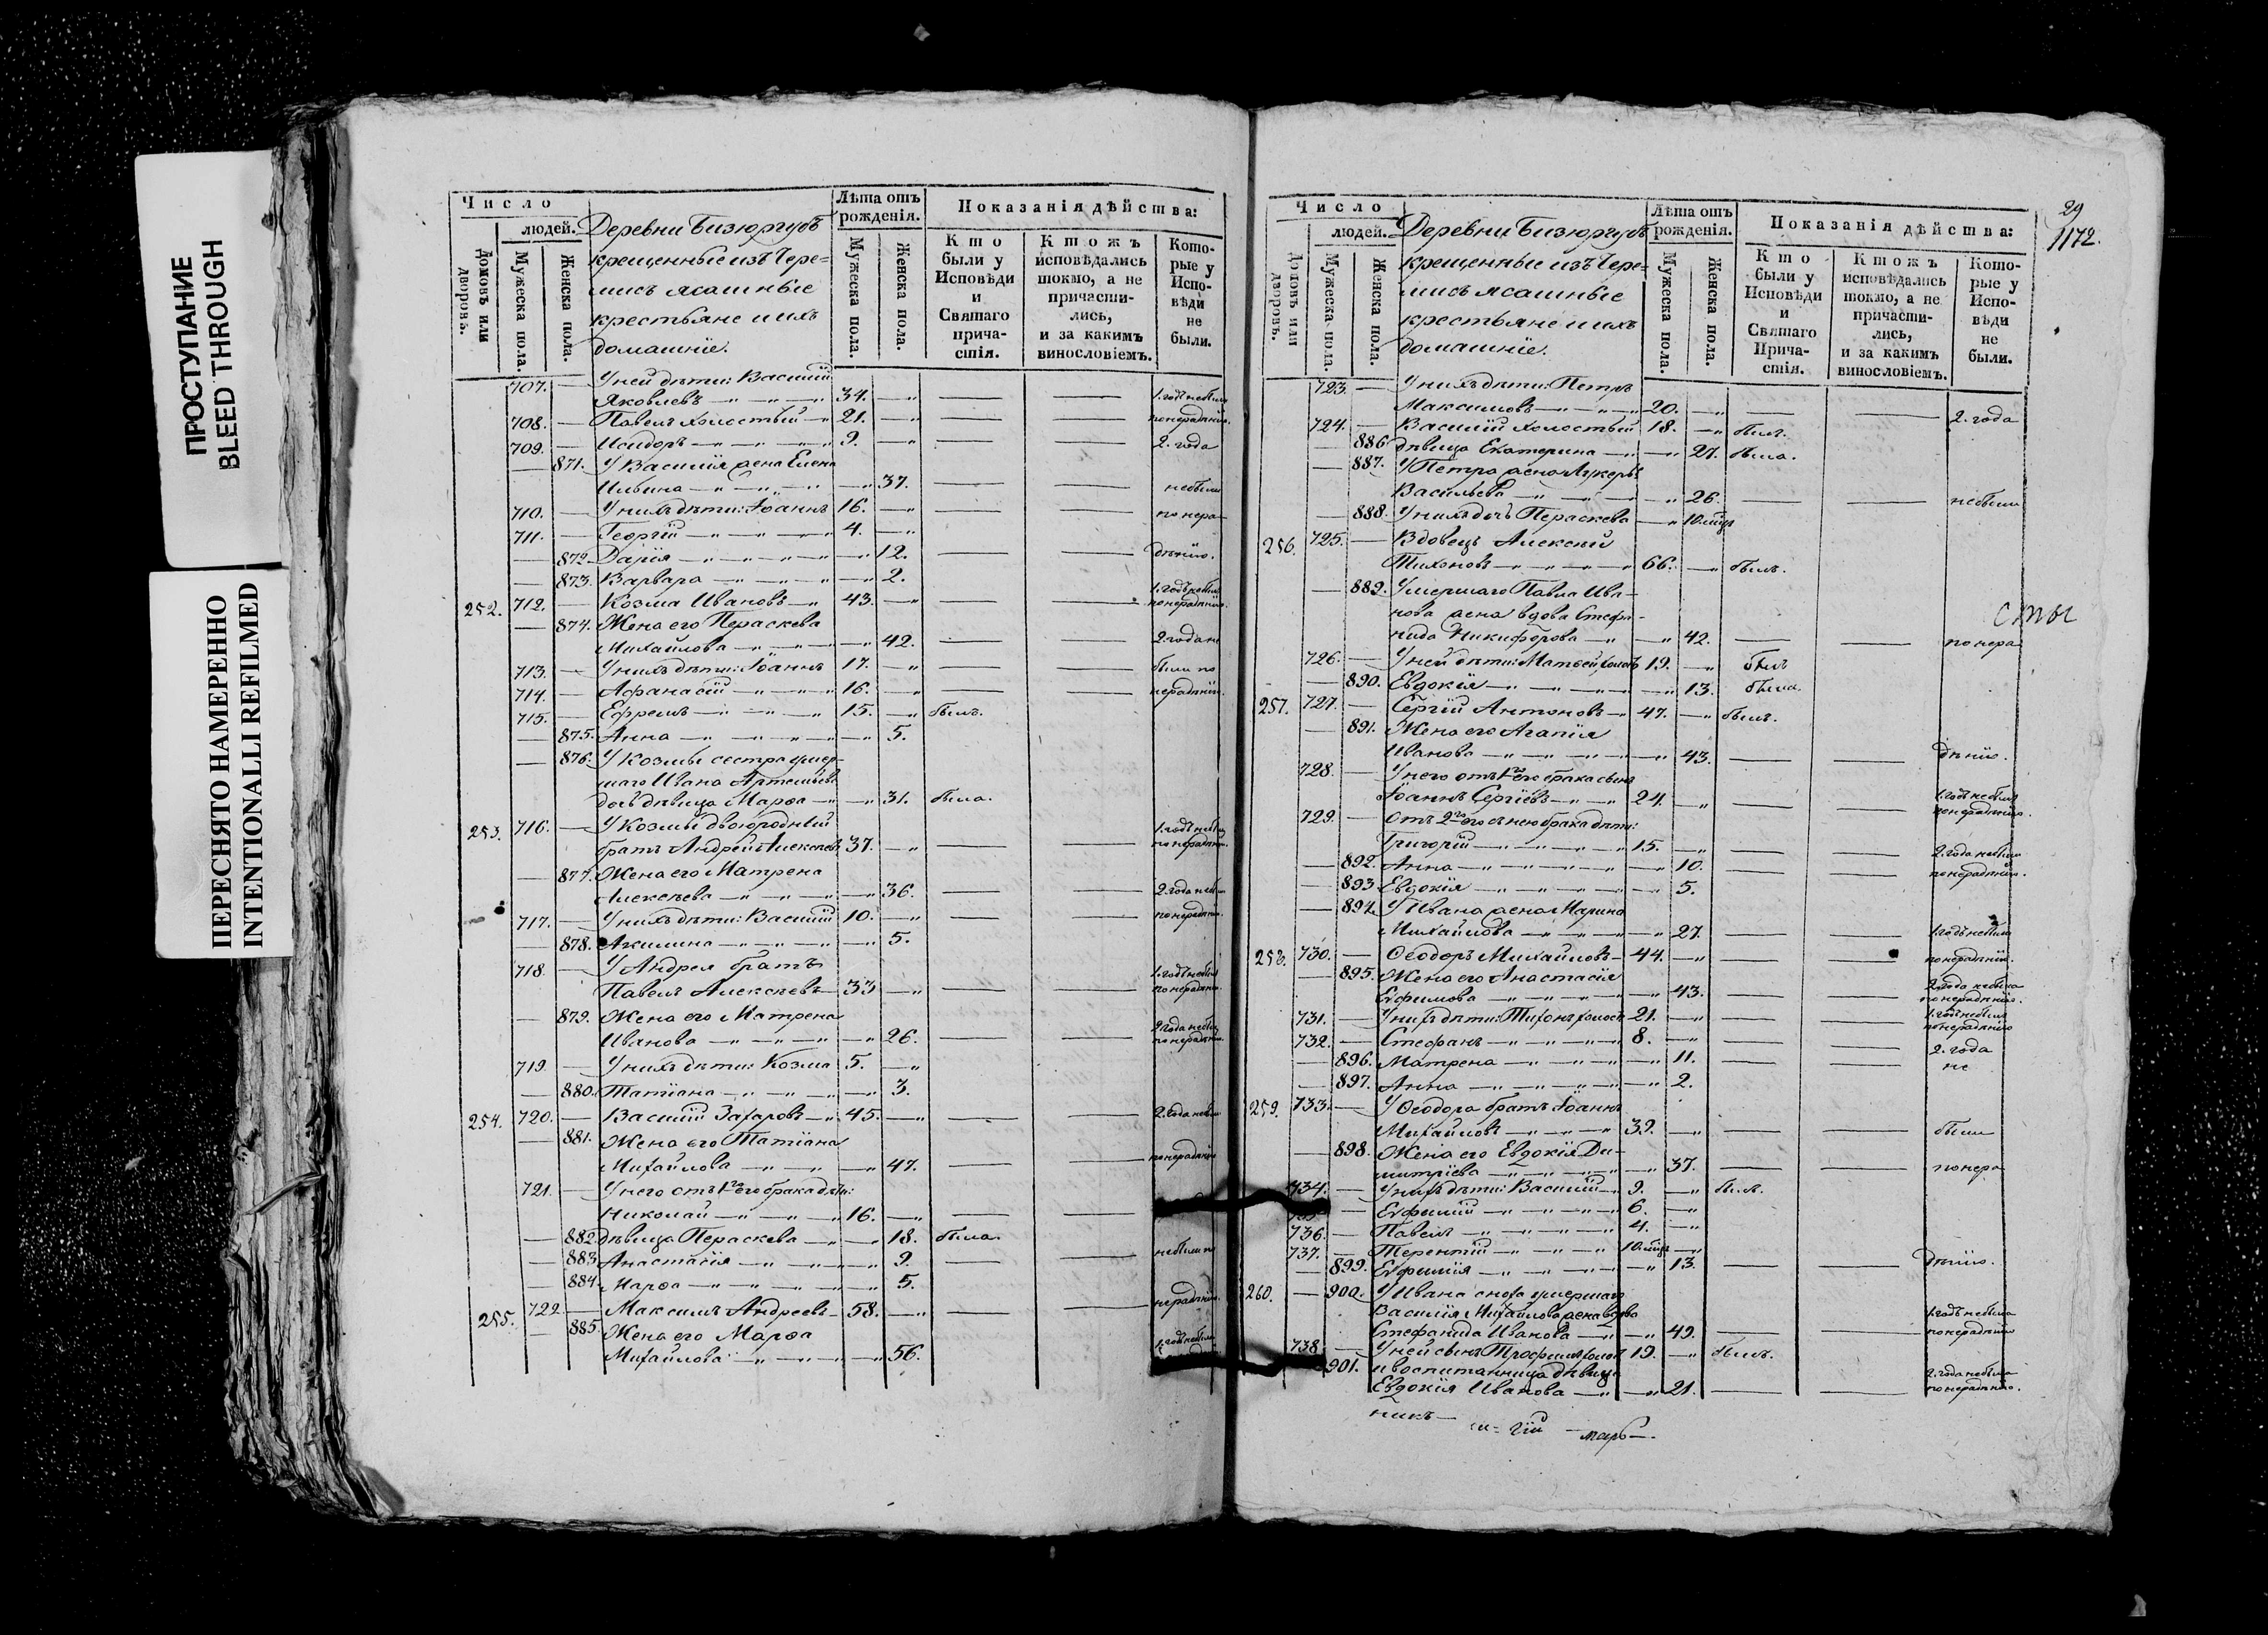 ПРОСТУПАНИЕ
BLEED THROUGH
ПЕРЕСНЯТО НАМЕРЕННО
INTENTIONALLI REFILMED
Число
людей.
Домовъ или дворовъ.
Мужеска пола.
Женска пола.
Деревни Бизюргубъ
крещенные изъ Чере=
мисъ ясашные
крестьяне и ихъ
домашніе.
Лѣта отъ рожденія.
Мужеска пола.
Женска пола.
Показанія дѣйства:
Кто были у Исповѣди и Святаго причастія.
Ктожъ исповѣдались токмо, а не причастились, и за какимъ винословіемъ.
Которые у Исповѣди не были.
707. — У ней дѣти: Василій
Яковлевъ 34. 1. годъ небыли
708. — Павелъ холостый 21. понерадѣнію.
709. — Исидоръ 9. 2. года
— 871. У Василія жена Елена
Ильина 37. небыли
710. — У нихъ дѣти: Іоаннъ 16. понера
711. — Георгій 4.
— 872. Дарія 12. дѣнію.
— 873. Варвара 2.
252. 712. — Козма Ивановъ 43. 1. годъ небылъ понерадѣнію.
— 874. Жена его Параскева
Михайлова 42. 2. года не
713. — У нихъ дѣти: Іоаннъ 17. были по
714. — Афанасій 16. нерадѣнію.
715. — Ефремъ 15. былъ.
— 875. Анна 5.
— 876. У Козмы сестра умер-
шаго Ивана Артемьева
дочь дѣвица Марѳа 31. была.
253. 716. — У Козмы двоюродный 1. годъ небылъ
братъ Андрей Алексѣевъ 37. понерадѣнію.
— 877. Жена его Матрена
Алексѣева 36. 2. года небыли
717. — У нихъ дѣти: Василій 10. понерадѣнію.
— 878. Акилина 5.
718. — У Андрея братъ 1. годъ небылъ
Павелъ Алексѣевъ 33 понерадѣнію.
— 879. Жена его Матрена
Иванова 26. 2. года небыла понерадѣнію.
719. — У нихъ дѣти: Козма 5.
— 880. Татіана 3.
254. 720. — Василій Захаровъ 45. 2. года небыли
— 881. Жена его Татіана
Михайлова 47. понерадѣнію
721. — У него отъ 1го его брака дѣти:
Николай 16.
— 882. дѣвица Пераскева 18. была.
— 883. Анастасія 9. небыли по
— 884. Марѳа 5.
255. 722. — Максимъ Андреевъ 58. нерадѣнію.
— 885. Жена его Марѳа
Михайлова 56. 1. годъ небыла
29
1172.
Число
людей.
Домовъ или дворовъ.
Мужеска пола.
Женска пола.
Деревни Бизюргубъ
крещенные изъ Чере=
мисъ ясашные
крестьяне и ихъ
домашніе.
Лѣта отъ рожденія.
Мужеска пола.
Женска пола.
Показанія дѣйства:
Кто были у Исповѣди и Святаго Причастія.
Ктожъ исповѣдались токмо, а не причастились, и за какимъ винословіемъ.
Которые у Исповѣди не были.
723. — У нихъ дѣти: Петръ
Максимовъ 20. 2. года
724. — Василій холостый 18. былъ.
— 886 дѣвица Екатерина 27. была.
— 887. У Петра жена Лукерья
Васильева 26. небыли
— 888. У нихъ дочь Пераскева 10 мцъ
256. 725. — Вдовецъ Алексѣй
Тихоновъ 66. былъ.
— 889. Умершаго Павла Ива-
нова жена вдова Стефа-
нида Никифорова 42. понера
сты
726. — У ней дѣти: Матѳей холостъ 19. былъ
— 890. Евдокія 13. была.
257. 727. — Сергій Антоновъ 47. былъ.
— 891. Жена его Агапія
Иванова 43. дѣнію.
728. — У него отъ 1го его брака сынъ
Іоаннъ Сергіевъ 24. 1. годъ небылъ понерадѣнію.
729. — отъ 2го его съ нею брака дѣти:
Григорій 15. 2. года небыли
— 892. Анна 10. понерадѣнію.
— 893 Евдокія 5.
— 894. У Ивана жена Марина
Михайлова 27. 1. годъ небыли
258. 730. — Ѳеодоръ Михайловъ 44. понерадѣнію.
— 895. Жена его Анастасія
Ефимова 43. 2. года небыла понерадѣнію.
731. — У нихъ дѣти: Тихонъ холостъ 21. 1. годъ небылъ понерадѣнію
732. — Стефанъ 8. 2. года
— 896. Матрена 11. не
— 897. Анна 2.
259. 733. — У Ѳеодора братъ Іоаннъ
Михайловъ 39. были
— 898. Жена его Евдокія Ди-
митріева 37. понера
734. — У нихъ дѣти: Василій 9. былъ.
— Ефимій 6.
736. — Павелъ 4.
737. — Терентій 10 мцъ
— 899. Ефимія 13. дѣнію.
260. — 900. У Ивана сноха умершаго
Василія Михайлова жена вдова 1. годъ небыла
Стефанида Иванова 49. понерадѣнію
738. — У ней сынъ Трофимъ холост 19. былъ.
901. и воспитанница дѣвица 2. года небыла
Евдокія Иванова 21. понерадѣнію.
никъ